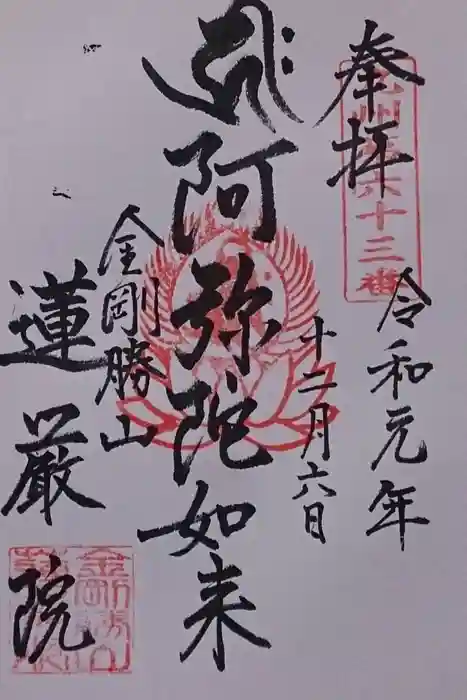 奉拝
令和元年
十二月六日
阿弥陀如来
金剛勝山
蓮厳院
六十三番